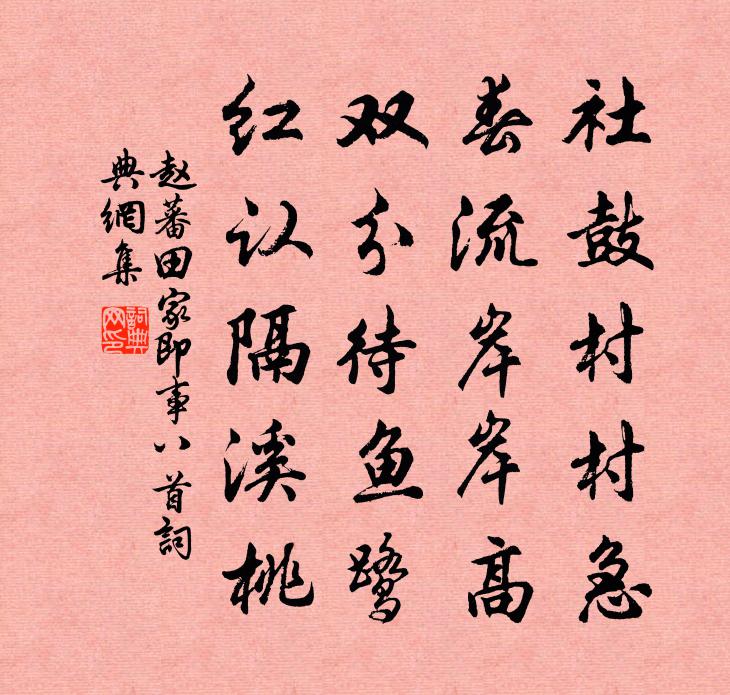 社鼓村村急
春流岸岸高
双分待鱼鹭
红认隔溪桃
赵蕃田家即事八首詞
典網集
詞典
网印